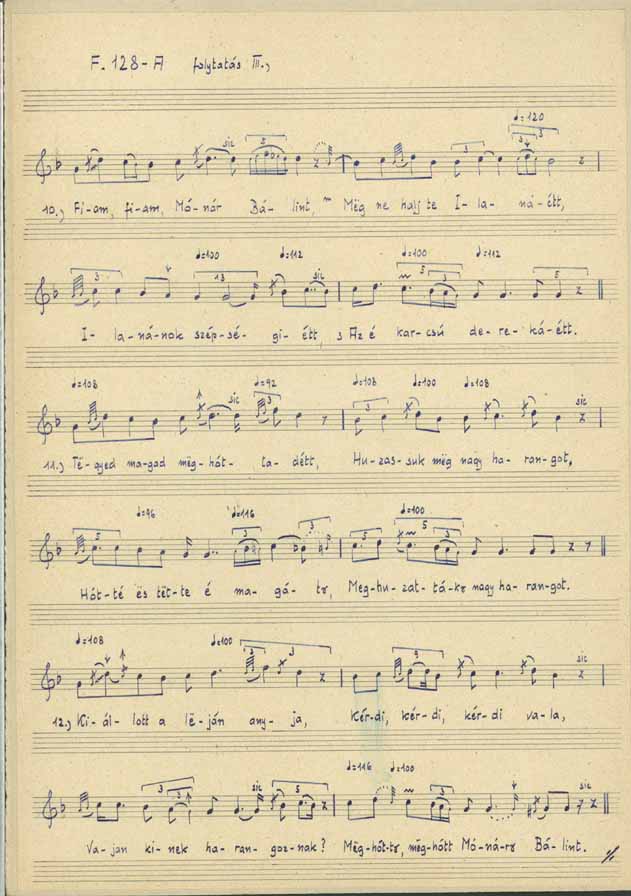 F. 128-A folytatás III.,
♩=120
sic 5 3 3 3
10.) Fi-am, fi-am, Mó-nár Bá-lint, Még ne halj te I-la-ná-étt,
♩=100 ♩=112 ♩=100 ♩=112
3 13 sic 5 3 5
I-la-ná-nok szép-sé-gi-étt, Az é kar-csú de-re-ká-étt.
♩=108 ♩=92 ♩=108 ♩=100 ♩=108
sic 3 3 sic
11.) Té-gyed ma-gad még-hót-ta-détt, Hu-zas-suk még nagy ha-ran-got,
♩=96 ♩=116 ♩=100
3 3 5 3
Hót-té és tët-te é ma-gá-tı, Meg-hu-zat-tá-kı nagy ha-ran-got.
♩=108 ♩=100
3 3 sic
12.) Ki-ál-lott a lë-ján any-ja, Kér-di, kér-di, kér-di va-la,
♩=116 ♩=100
3 3 sic 5 3 sic
Va-jan ki-nek ha-ran-goz-nak? Mëg-hót-tı, mëg-hótt Mó-ná-rı Bá-lint.